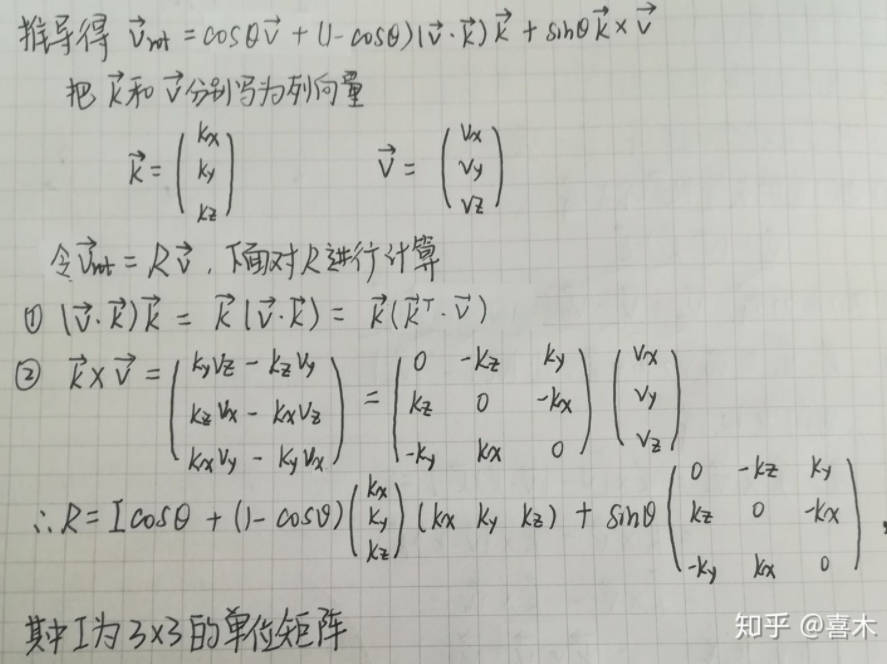 推导得 v⃗rot = cosθv⃗ + (1-cosθ)(v⃗·k⃗)k⃗ + sinθk⃗×v⃗
把k⃗和v⃗分别写为列向量
k⃗ = (kx ky kz) v⃗ = (vx vy vz)
令v⃗rot = Rv⃗, 下面对R进行计算
① (v⃗·k⃗)k⃗ = k⃗(v⃗·k⃗) = k⃗(k⃗ᵀ·v⃗)
② k⃗×v⃗ = (kyvz - kzvy kzvx - kxvz kxvy - kyvx) = (0 -kz ky kz 0 -kx -ky kx 0) (vx vy vz)
∴R = Icosθ + (1-cosθ)(kx ky kz)(kx ky kz) + sinθ(0 -kz ky kz 0 -kx -ky kx 0),
其中I为3×3的单位矩阵
知乎 @喜木